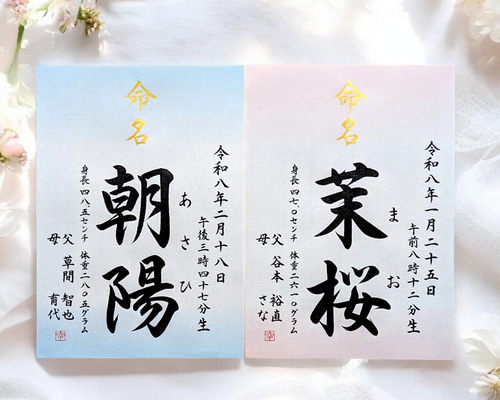 命名
令和八年一月二十五日
午前八時十二分生
茉桜
まお
身長四七.〇センチ 体重二六一〇グラム
父 谷本 裕直
母 さな
命名
令和八年二月十八日
午後三時四十七分生
朝陽
あさひ
身長四八.五センチ 体重二八〇五グラム
父 草間 智也
母 育代